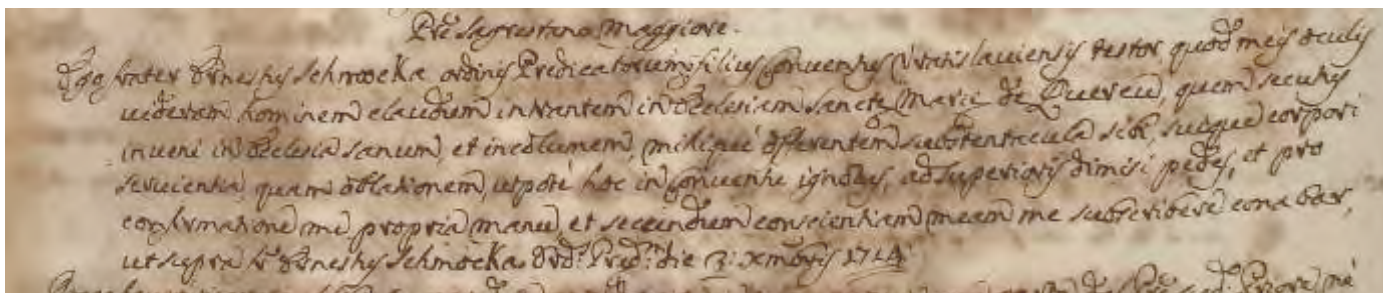 Pre Sagrestano Maggiore.
Ego frater Ernestus Schmoeka ordinis Predicatorum, filius Conventus Vratislaviensis testor, quod meis oculis
videram hominem claudum intrantem in Ecclesiam Sancte Marie de Quercu, quem secutus
inveni in Ecclesia sanum, et incolumem, mihique offerentem substentacula sibi, suique corpori
servientia, quam oblationem, utpote hoc in Conventu ignotus, ad Superioris dimisi pedes, et pro
confirmatione me propria manu, et secundum conscientiam meam me subscribere conabar,
ut supra fr Ernestus Schmoeka Ord: Pred: die 3: xmbris 1714